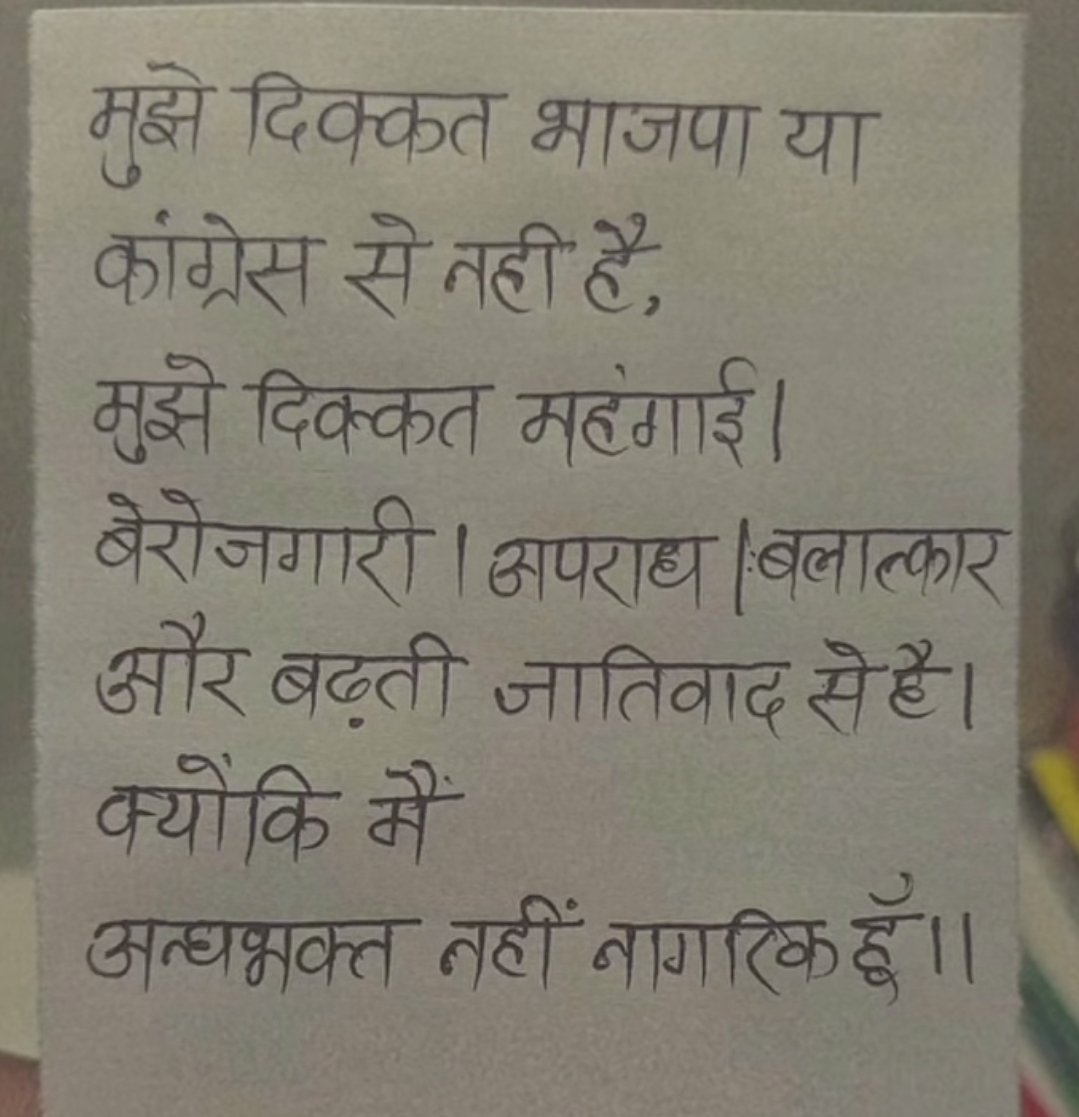 मुझे दिक्कत भाजपा या
कांग्रेस से नही है,
मुझे दिक्कत महंगाई।
बेरोजगारी । अपराध । बलात्कार
और बढ़ती जातिवाद से है।
क्योंकि मैं
अन्धभक्त नहीं नागरिक हूँ ।।